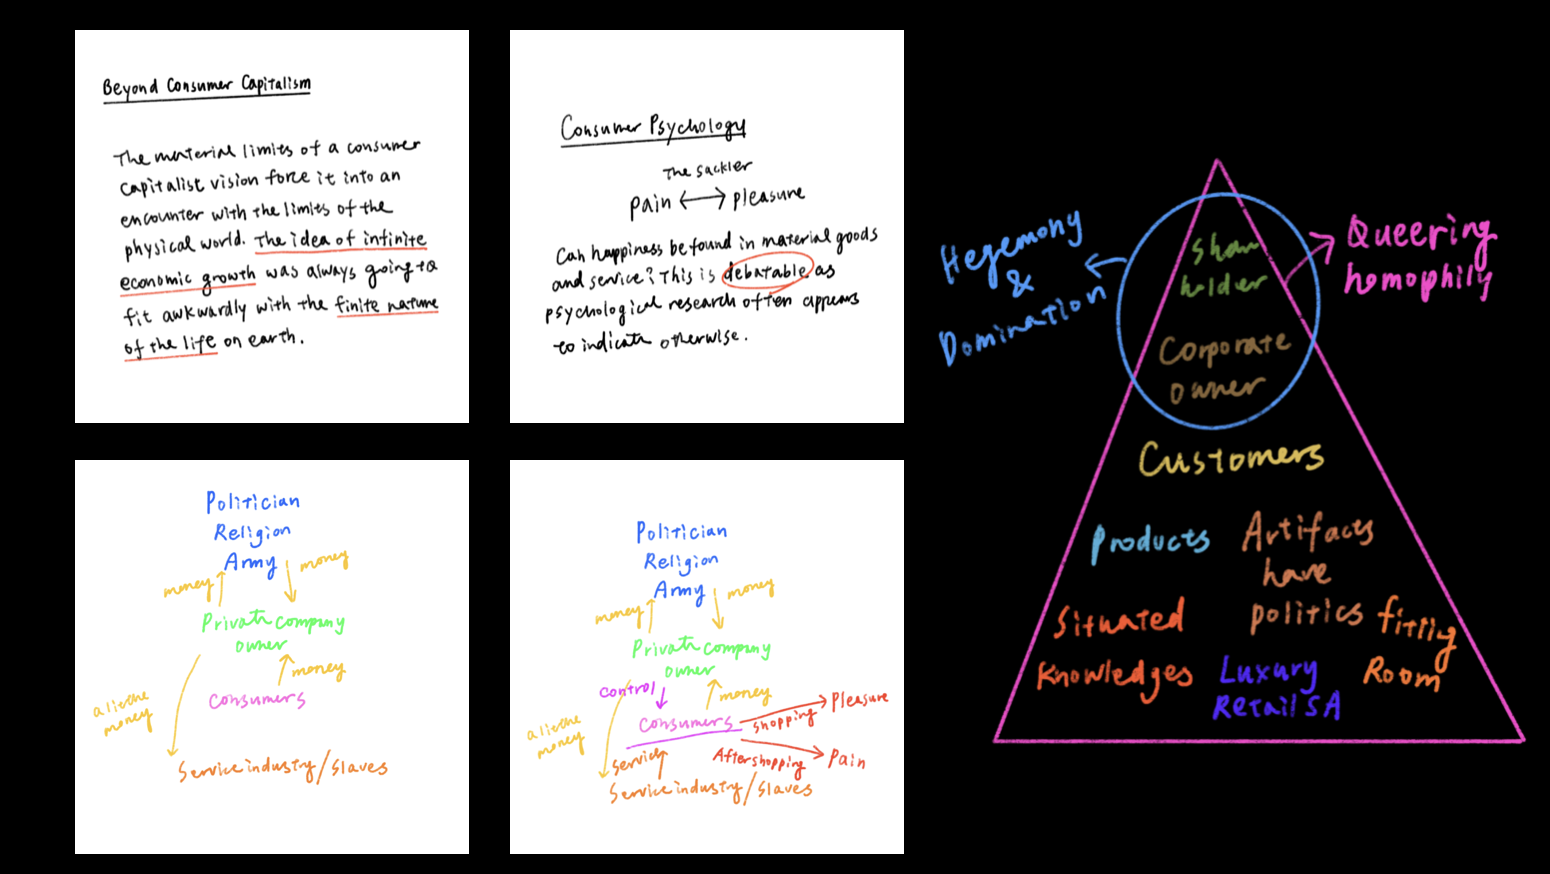 Beyond Consumer Capitalism
The material limits of a consumer
capitalist vision force it into an
encounter with the limits of the
physical world. The idea of infinite
economic growth was always going to
fit awkwardly with the finite nature
of the life on earth.
Consumer Psychology
The sackler
pain ⟷ pleasure
Can happiness be found in material goods
and service? This is debatable as
psychological research often appears
to indicate otherwise.
Politician
Religion
Army
money
money
Private company
owner
money
Consumers
a little
money
Service industry/Slaves
Politician
Religion
Army
money
money
Private company
owner
control
money
Consumers
shopping
Pleasure
a little
money
Service
After shopping
Pain
Service industry/Slaves
Hegemony
&
Domination
Queering
homophily
Share
holder
Corporate
owner
Customers
Products
Artifacts
have
politics
Situated
Knowledges
fitting
Room
Luxury
Retail SA